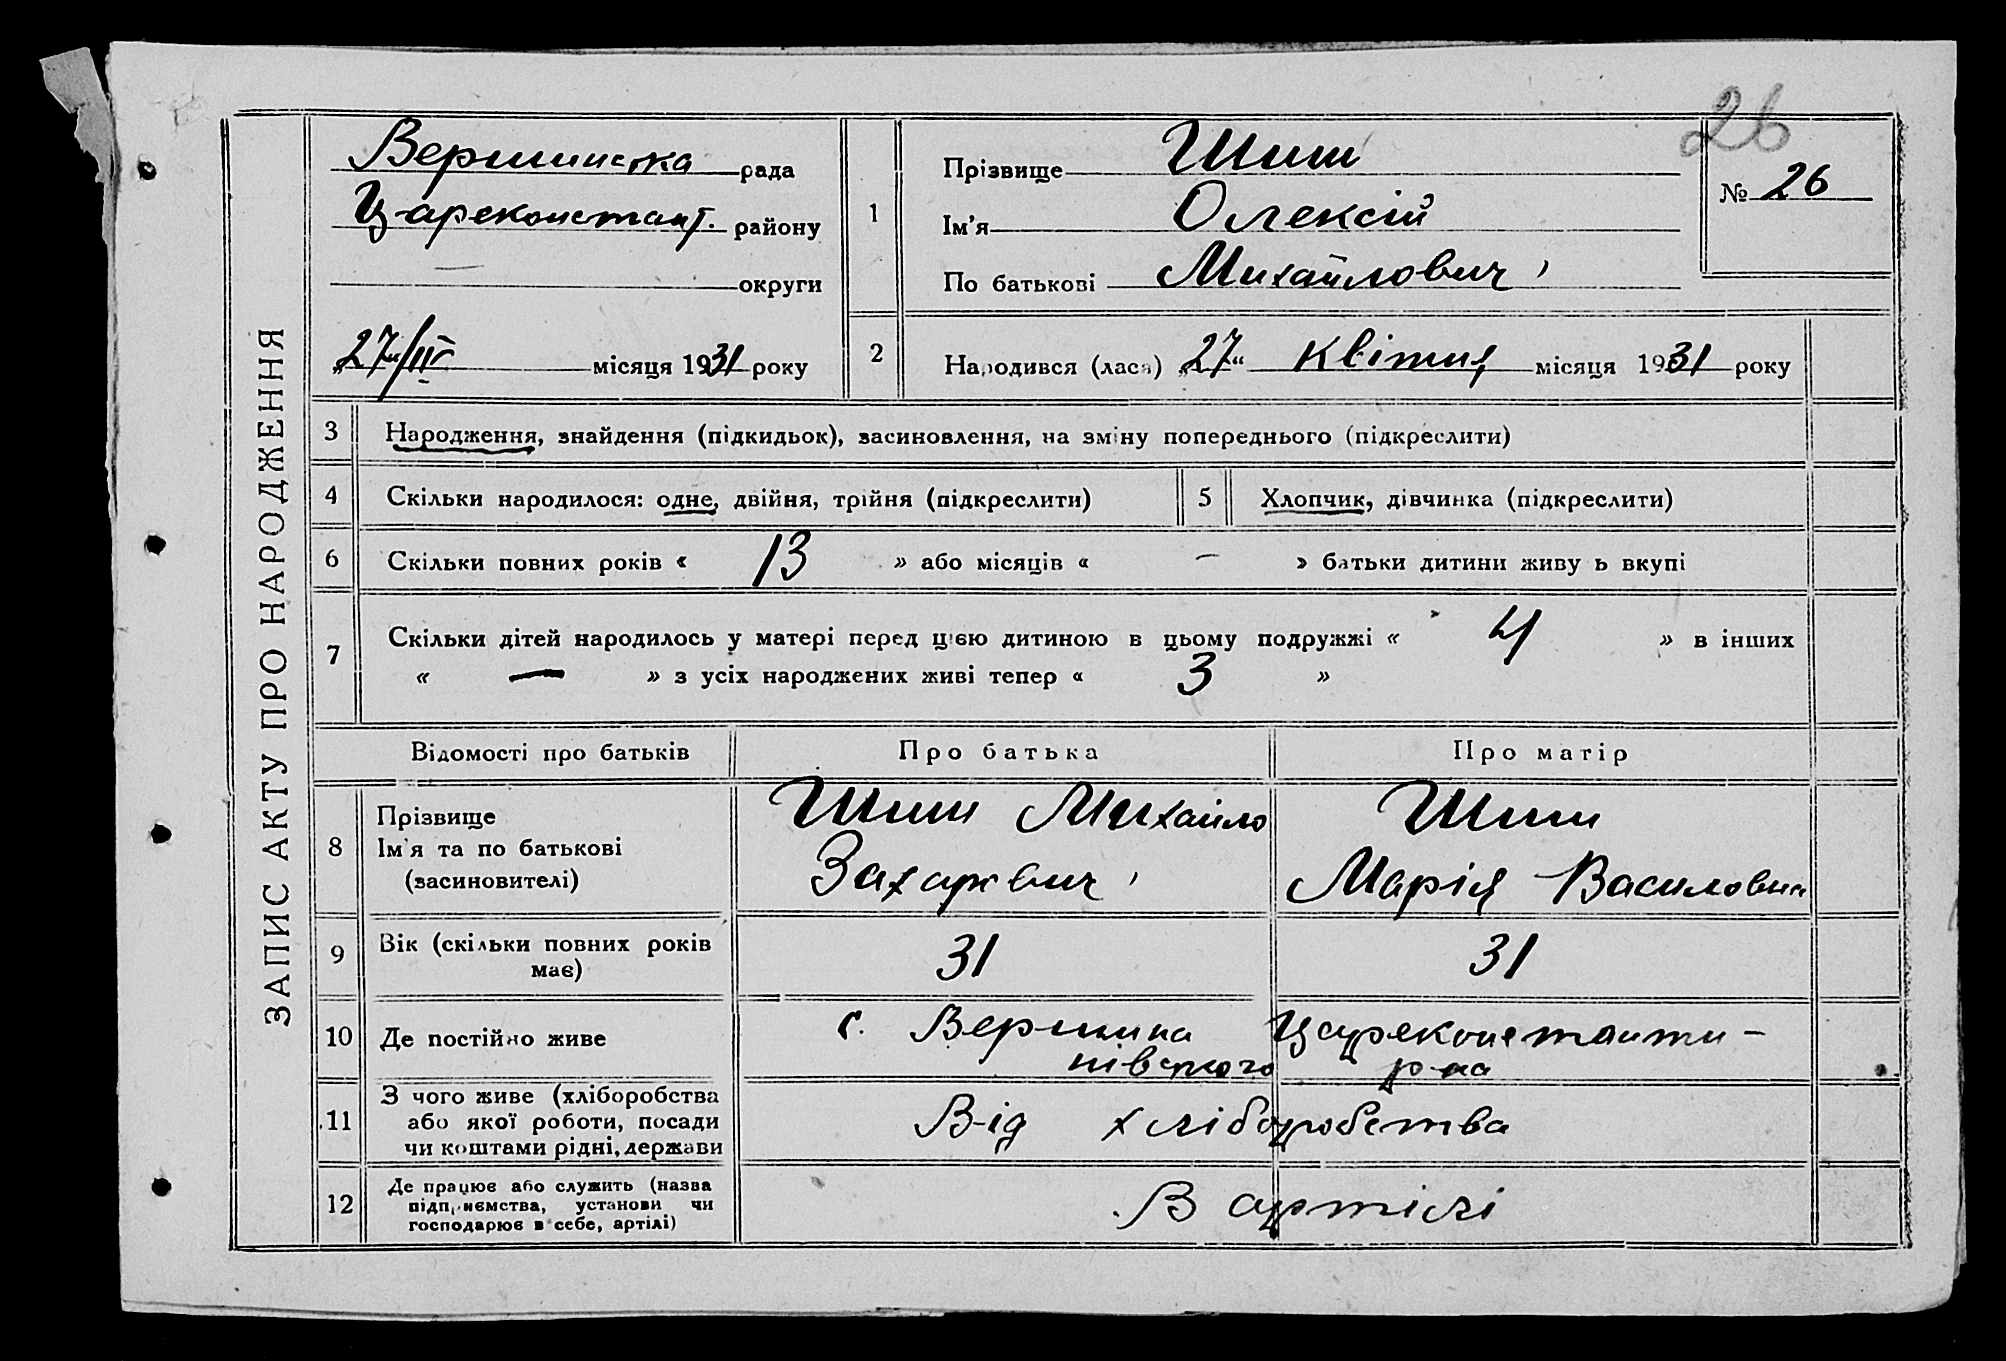 26
ЗАПИС АКТУ ПРО НАРОДЖЕННЯ
Вершинська рада
Цареконстант. району
— округи
„27“/IV місяця 1931 року
1
Прізвище Шиш
Ім'я Олексій
По батькові Михайлович
№ 26
2
Народився (лася) „27“ Квітня місяця 1931 року
3 Народження, знайдення (підкидьок), засиновлення, на зміну попереднього (підкреслити)
4 Скільки народилося: одне, двійня, трійня (підкреслити)
5 Хлопчик, дівчинка (підкреслити)
6 Скільки повних років « 13 » або місяців « — » батьки дитини живу ь вкупі
7 Скільки дітей народилось у матері перед цією дитиною в цьому подружжі « 4 » в інших
« — » з усіх народжених живі тепер « 3 »
Відомості про батьків Про батька Про матір
8
Прізвище
Ім'я та по батькові
(засиновителі)
Шиш Михайло
Захарович
Шиш
Марія Василовна
9
Вік (скільки повних років
має)
31 31
10 Де постійно живе
с. Вершина Цареконстанти-
нівського р-на
11
З чого живе (хліборобства
або якої роботи, посади
чи коштами рідні, держави
Від хліборобства
12
Де працює або служить (назва
підприємства, установи чи
господарює в себе, артілі)
В артілі